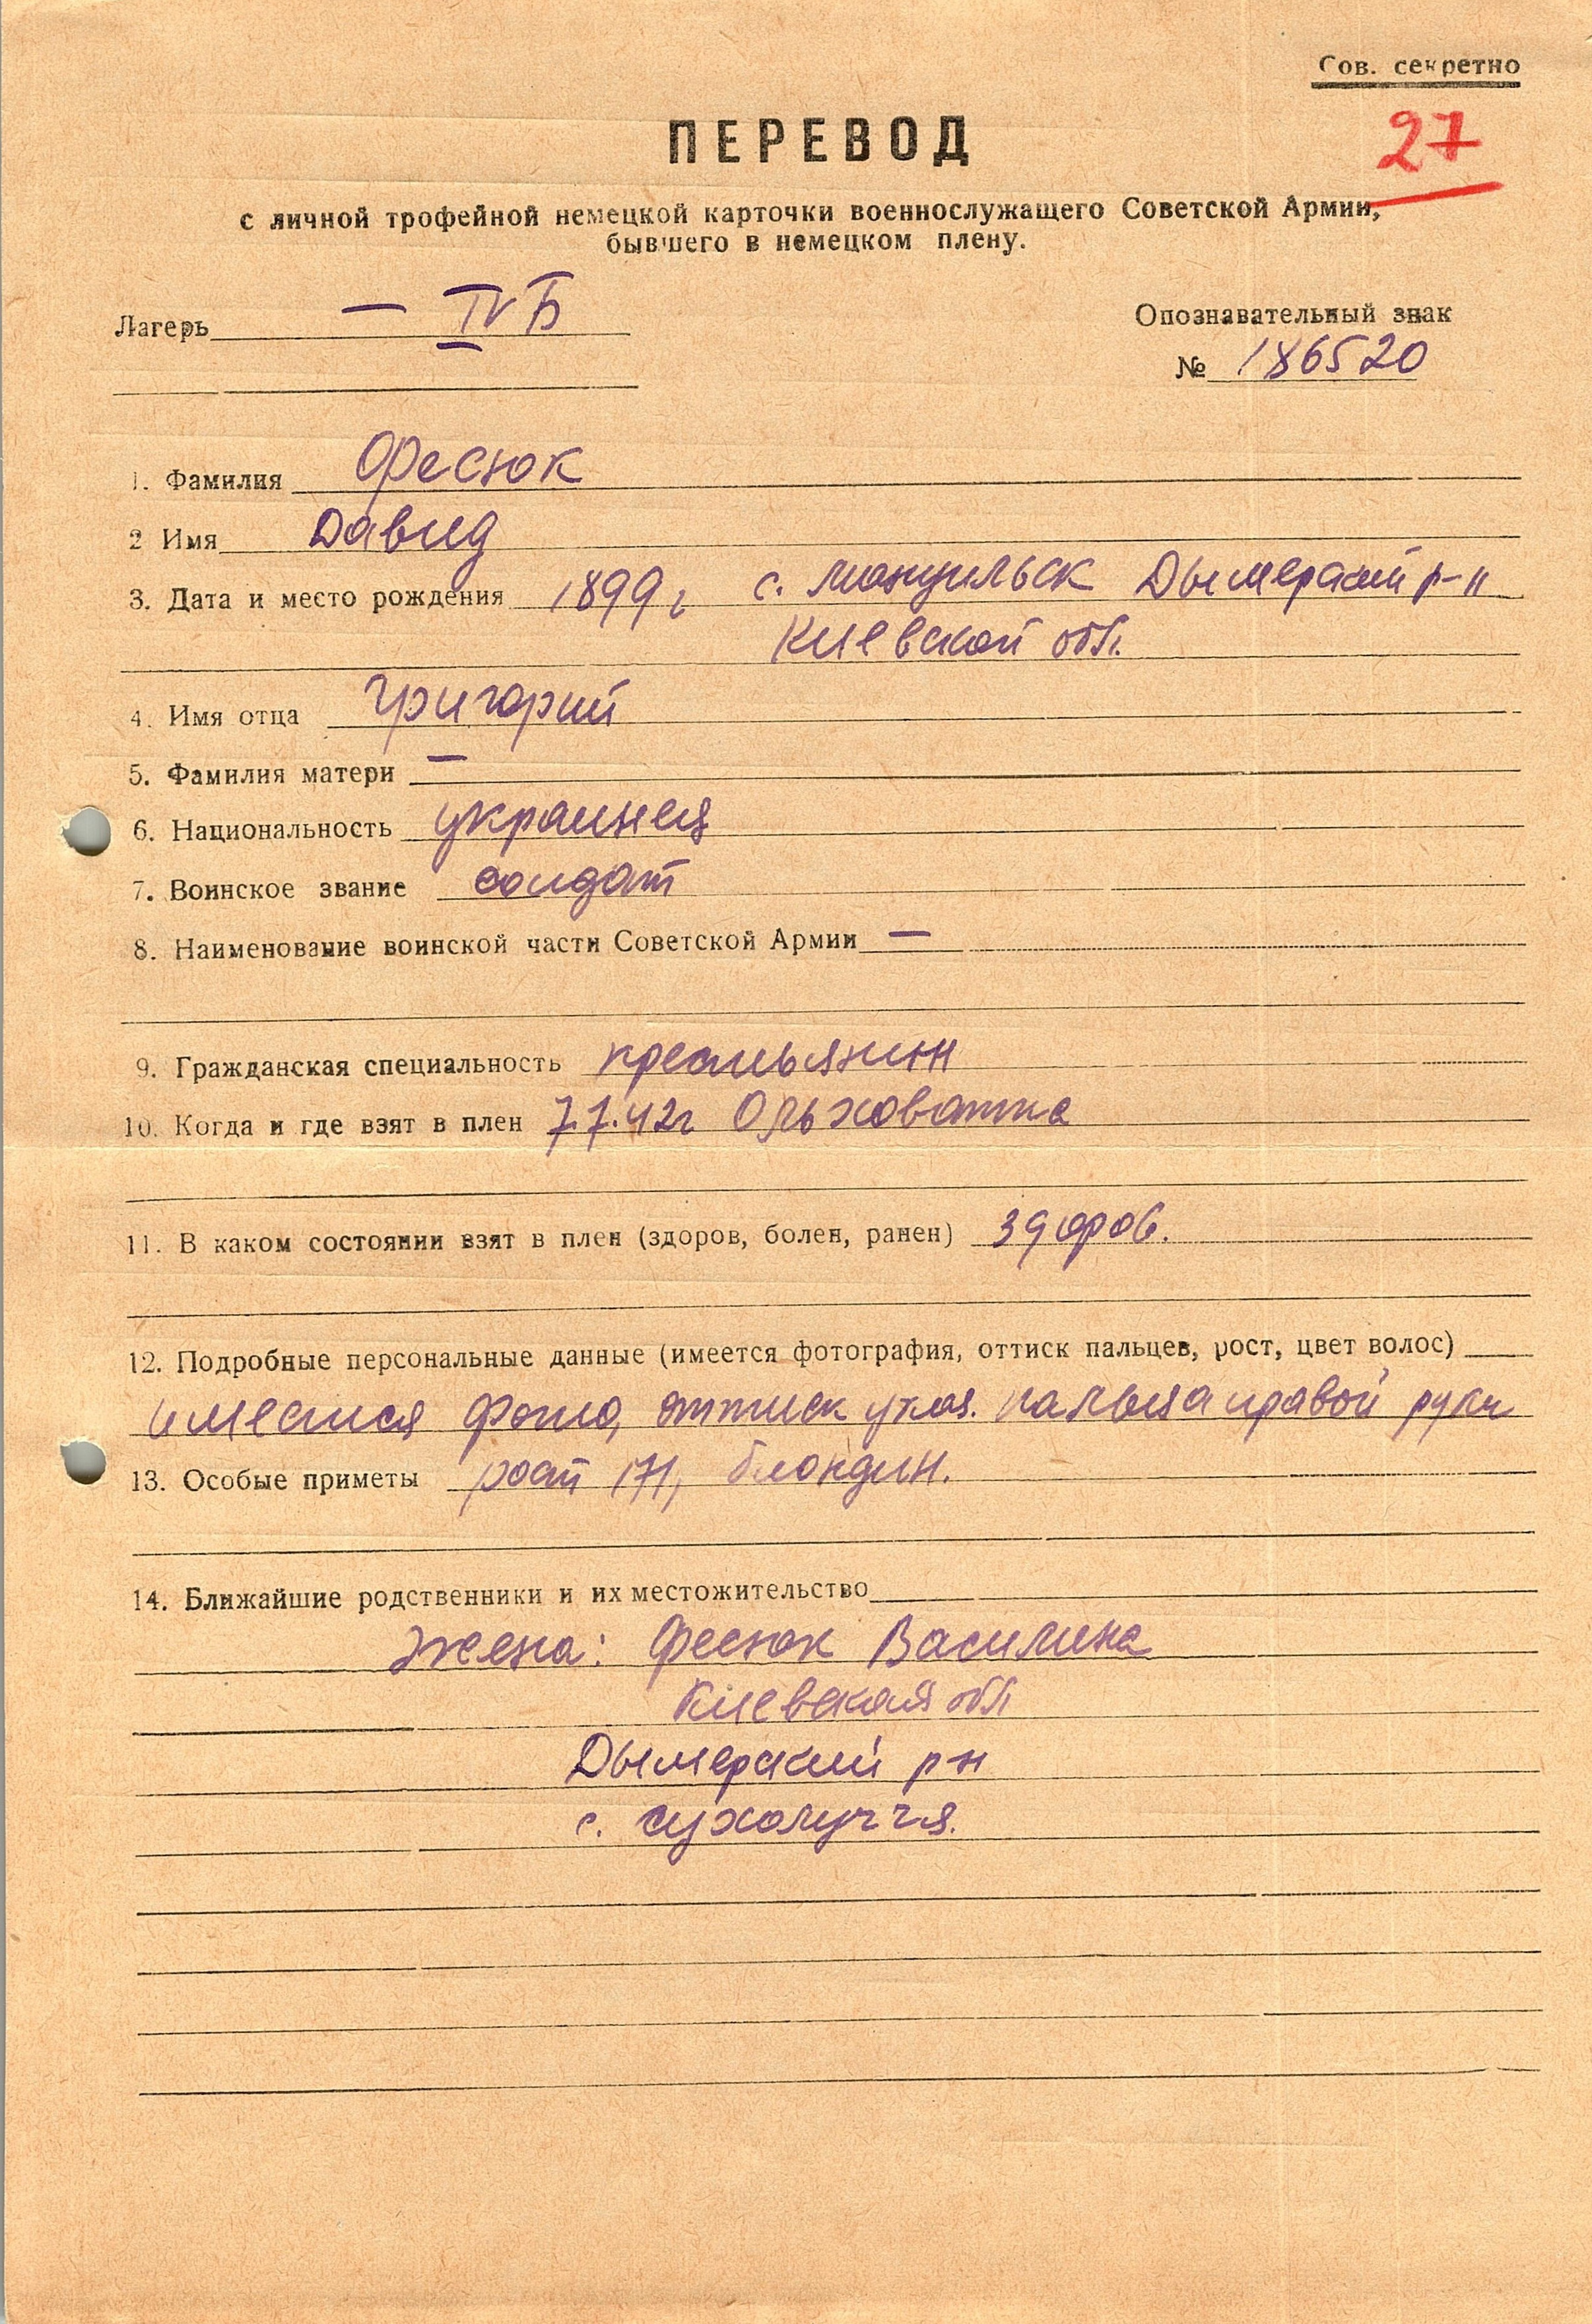 Сов. секретно
27
ПЕРЕВОД
с личной трофейной немецкой карточки военнослужащего Советской Армии,
бывшего в немецком плену.
Лагерь — IV Б
Опознавательный знак
№ 186520
1. Фамилия Фесюк
2 Имя Давид
3. Дата и место рождения 1899 г с. Дымерский р-н
Киевской обл.
4. Имя отца Григорий
5. Фамилия матери —
6. Национальность украинец
7. Воинское звание солдат
8. Наименование воинской части Советской Армии —
9. Гражданская специальность крестьянин
10. Когда и где взят в плен 7.7.42г Ольховатка
11. В каком состоянии взят в плен (здоров, болен, ранен) здоров.
12. Подробные персональные данные (имеется фотография, оттиск пальцев, рост, цвет волос)
имеется фото, оттиск указ. пальца правой руки
13. Особые приметы рост 171, блондин.
14. Ближайшие родственники и их местожительство
жена: Фесюк Василина
Киевская обл
Дымерский рн
с. Сухолуччя.